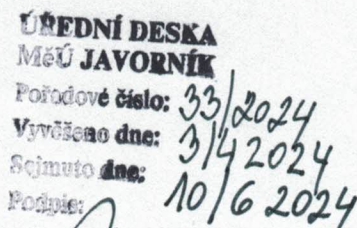 ÚŘEDNÍ DESKA
MěÚ JAVORNÍK
Pořadové číslo: 33/2024
Vyvěšeno dne: 3/4 2024
Sejmuto dne: 10/6 2024
Podpis: